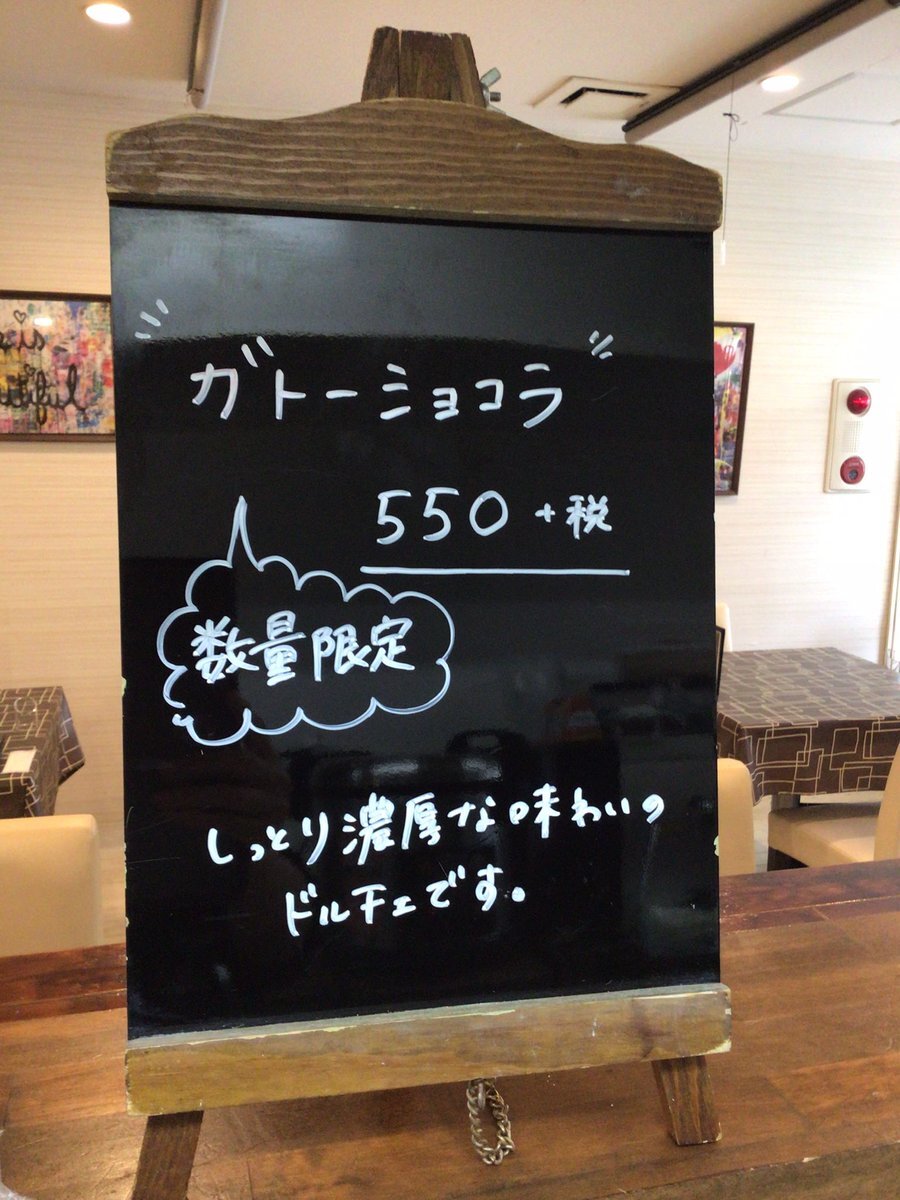 ガトーショコラ
550 +税
数量限定
しっとり濃厚な味わいの
ドルチェです。
is